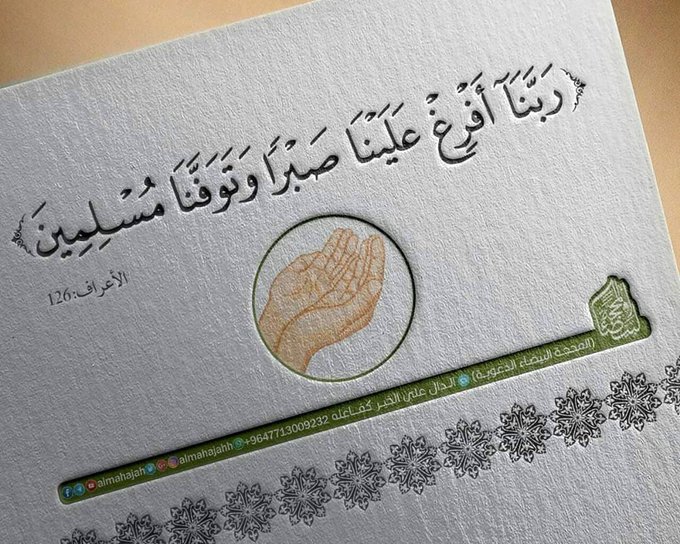 ﴿رَبَّنَآ أَفْرِغْ عَلَيْنَا صَبْرًا وَتَوَفَّنَا مُسْلِمِينَ﴾
الأعراف:126
(المحجة البيضاء الدعوية) الدال على الخير كفاعله +9647713009232 almahajahh almahajah